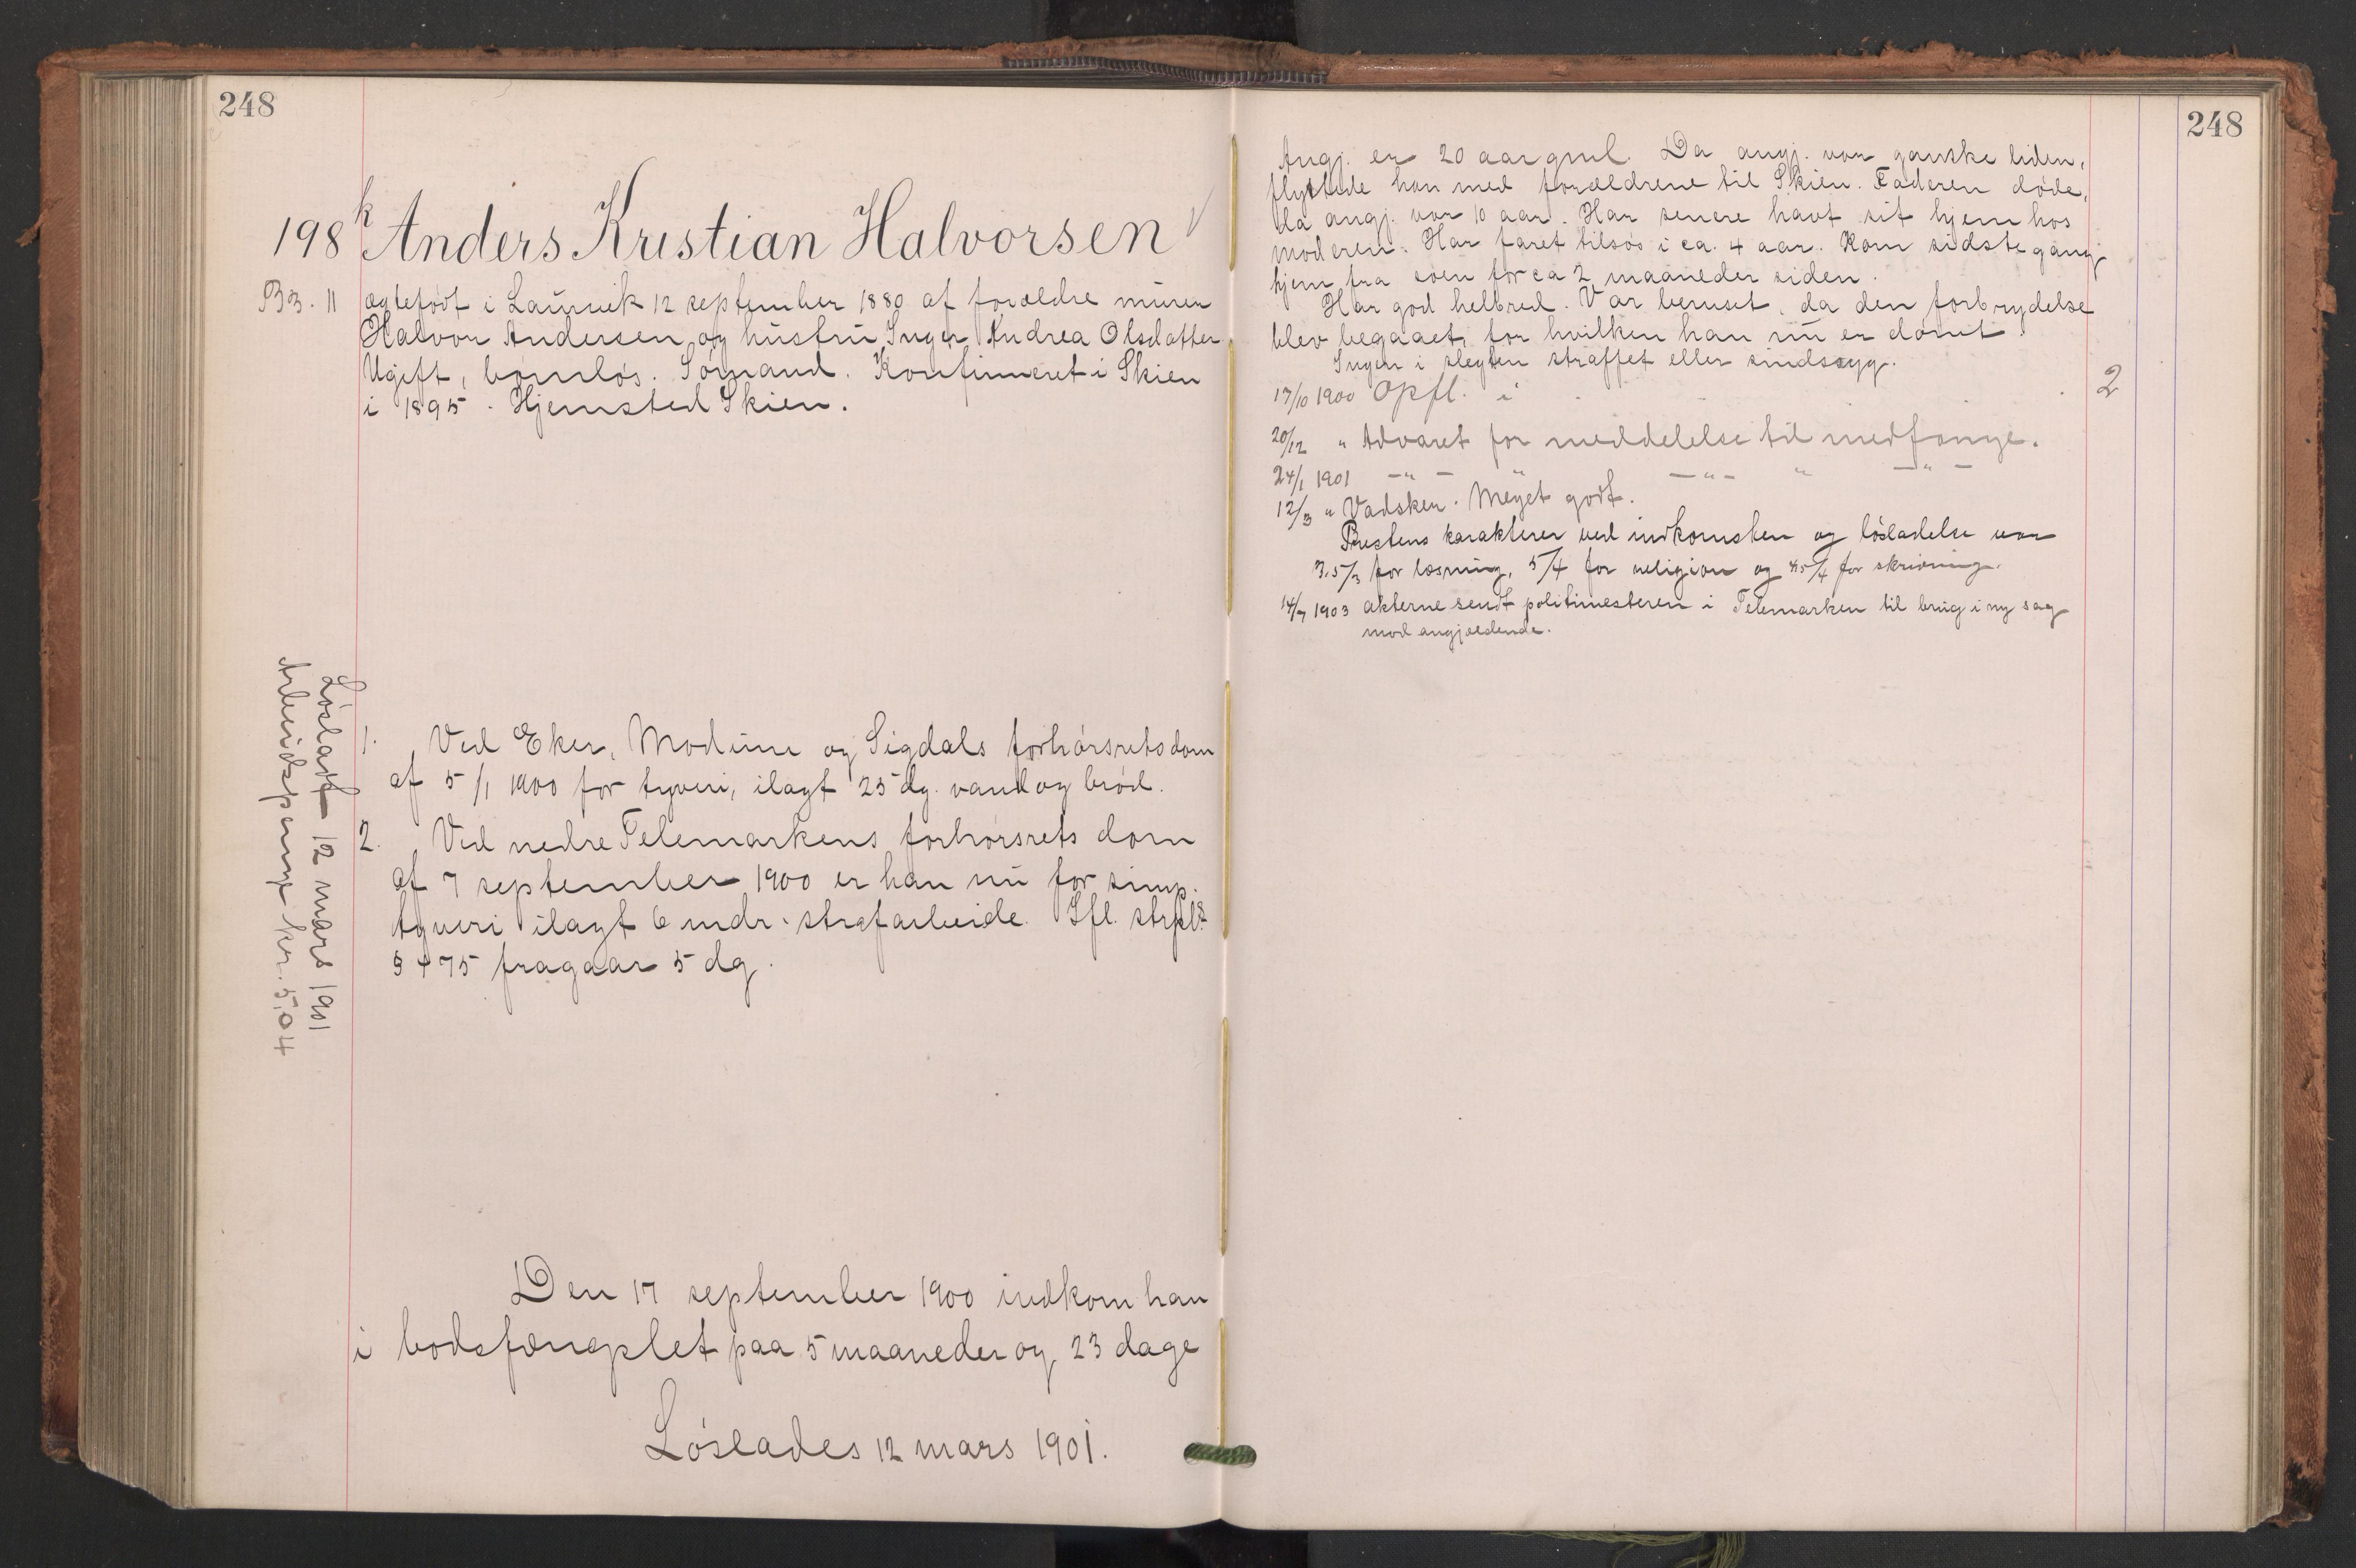 248
198 k Anders Kristian Halvorsen
B3. 11 ægtefødt i Laurvik 12 september 1880 af forældre murer
Halvor Andersen og hustru Inger Andrea Olsdatter
Ugift, barnløs. Sømand. Konfirmeret i Skien
i 1895. Hjemsted Skien.
Løsladt 12 mars 1901
Arbeidspenge kr. 5,04
1. Ved Eker, Modum og Sigdals forhørsretsdom
af 5/1 1900 for tyveri, ilagt 25 dg. vand og brød.
2. Ved nedre Telemarkens forhørsrets dom
af 7 september 1900 er han nu for simp.
tyveri ilagt 6 mdr. strafarbeide. Ifl. strpl.
§ 475 fragaar 5 dg.
Den 17 september 1900 indkom han
i bodsfængslet paa 5 maaneder og 23 dage
Løslades 12 mars 1901.
248
Angj. er 20 aar gml. Da angj. var ganske liden,
flyttede han med forældrene til Skien. Faderen døde,
da angj. var 10 aar. Har senere havt sit hjem hos
moderen. Har faret tilsøs i ca. 4 aar. Kom sidste gang
hjem fra søen for ca 2 maaneder siden.
Har god helbred. Var beruset, da den forbrydelse
blev begaaet, for hvilken han nu er dømt.
Ingen i slegten straffet eller sindssyg.
17/10 1900 Opfl. i 2
20/12 " Advaret for meddelelse til medfange.
24/1 1901 -"- " -"- " -"-
12/3 " Vadsken. Meget godt.
Prestens karakterer ved indkomsten og løsladelse var
3,5/3 for læsning, 5/4 for religion og 4,5/4 for skrivning.
14/7 1903 akterne sendt politimesteren i Telemarken til brug i ny sag
mod angjældende.